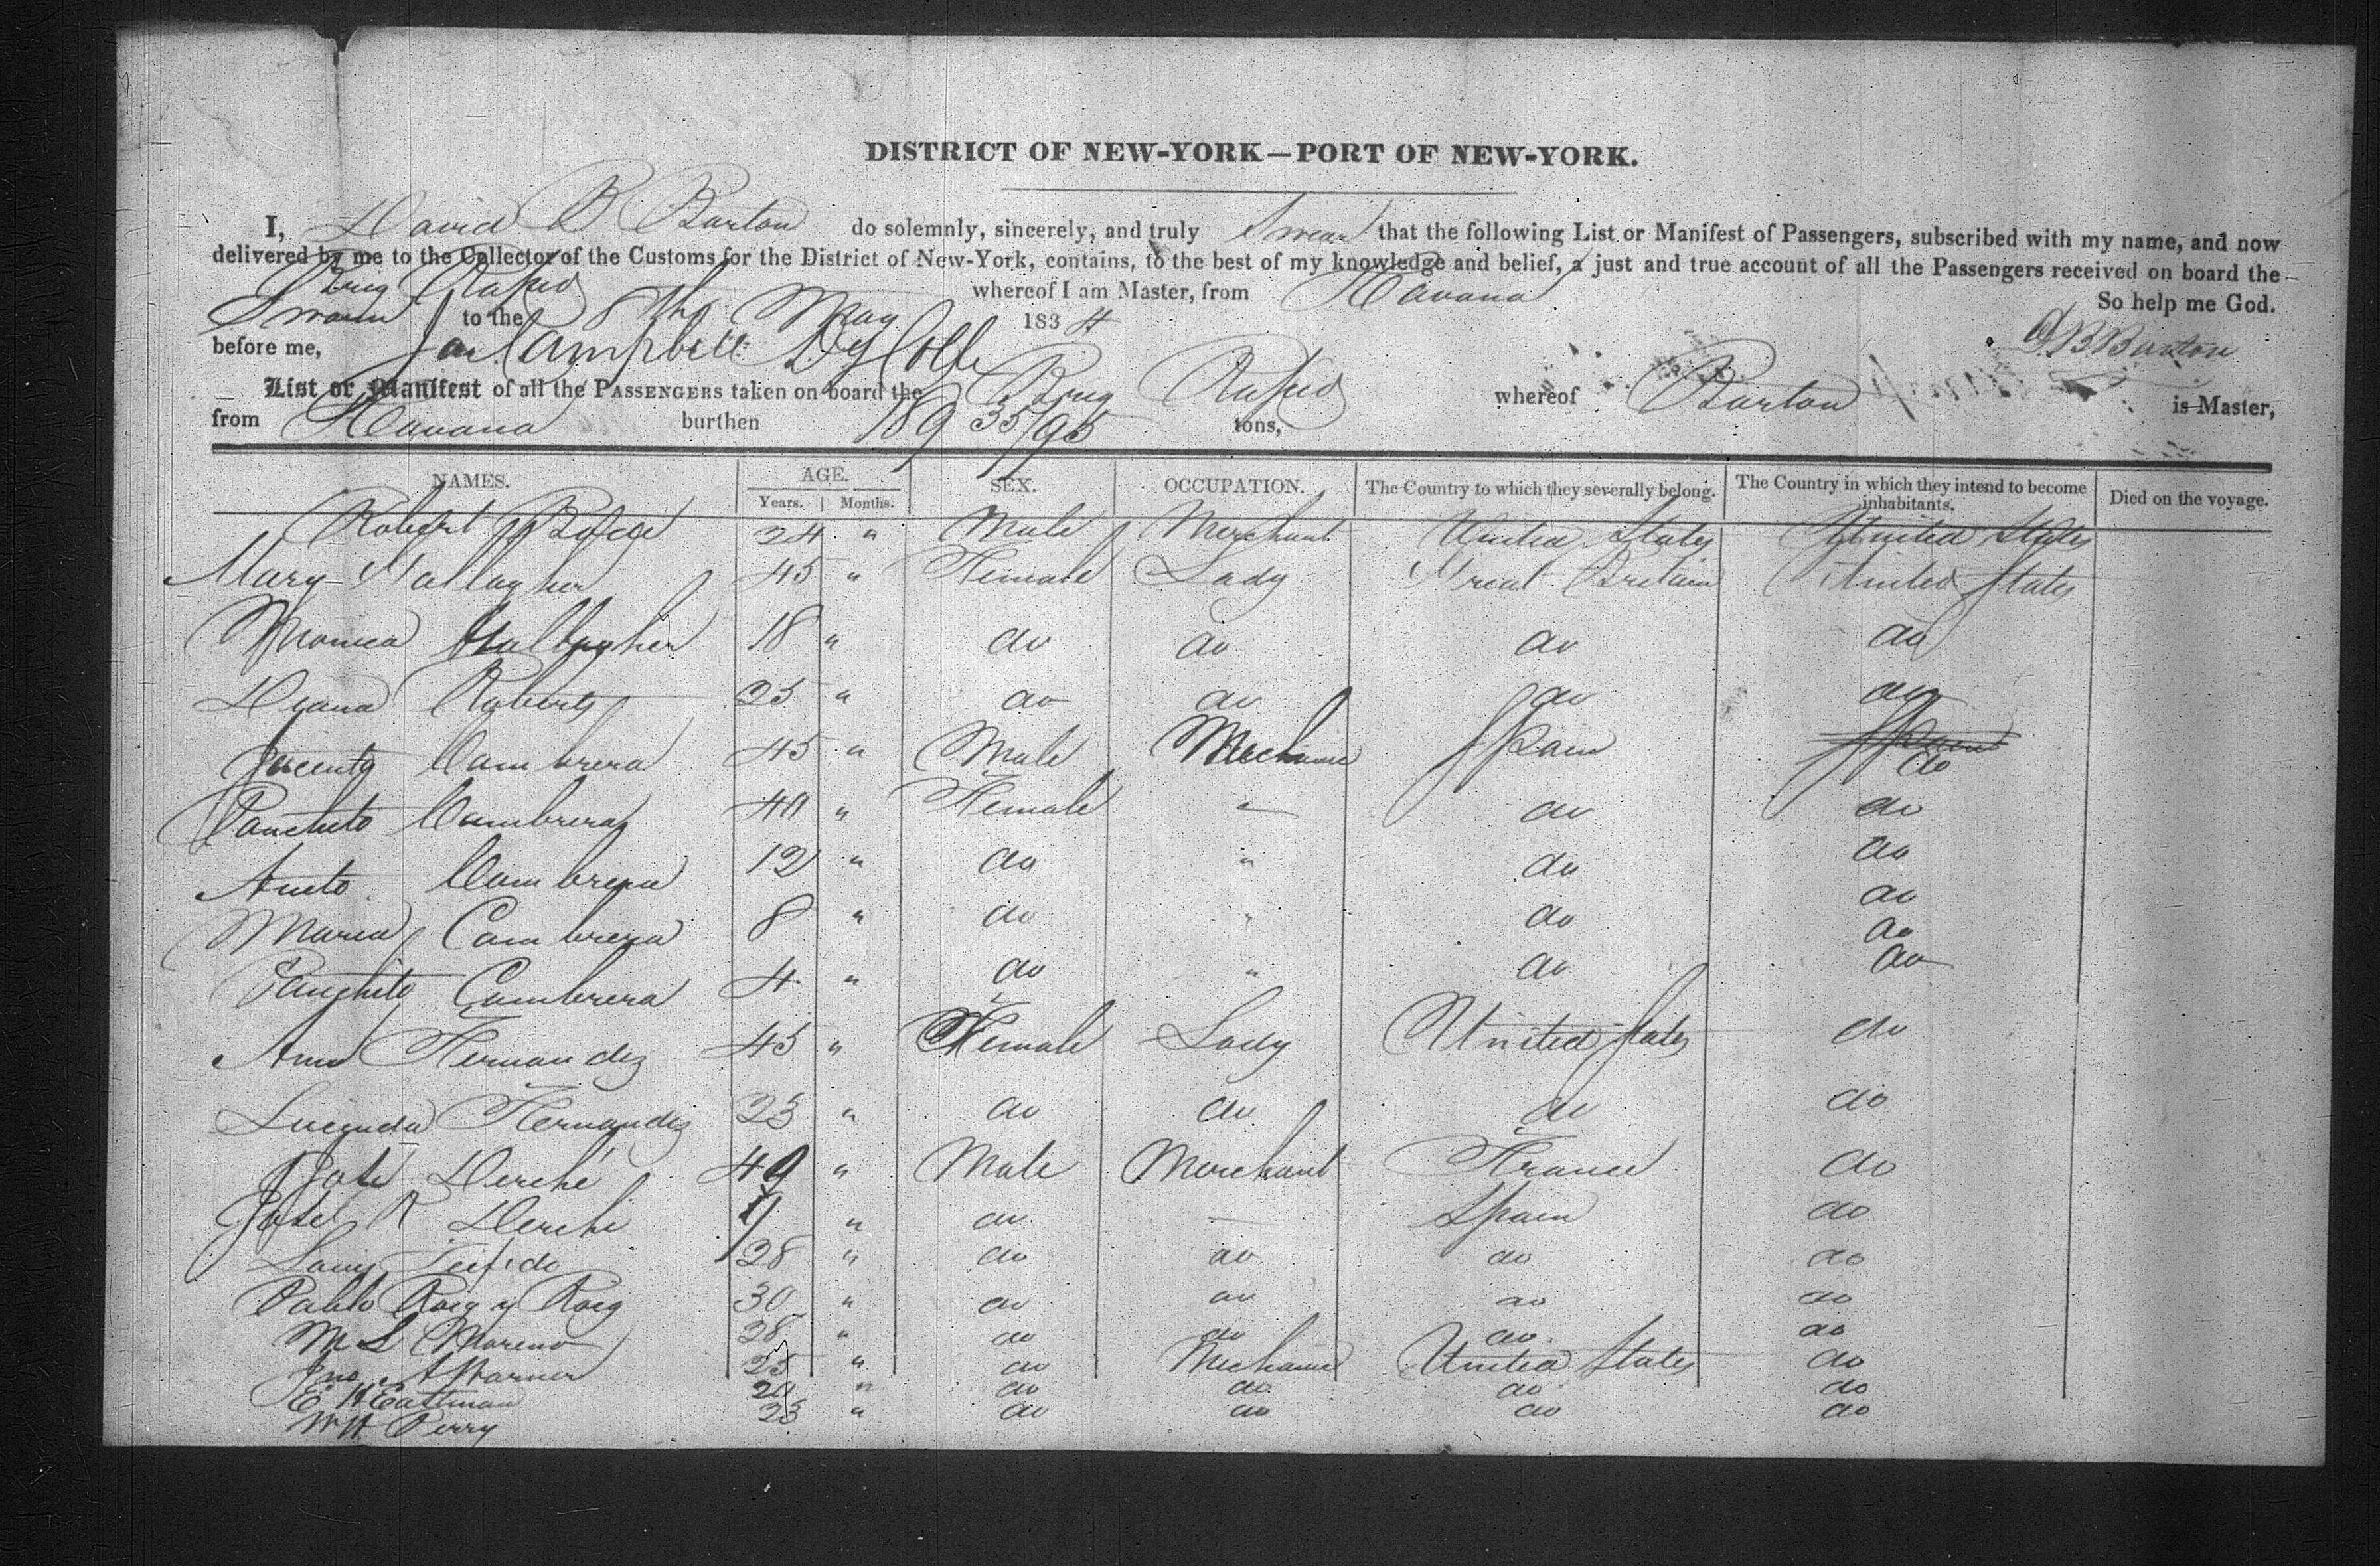 DISTRICT OF NEW-YORK—PORT OF NEW-YORK.
I, David B Barton do solemnly, sincerely, and truly Swear that the following List or Manifest of Passengers, subscribed with my name, and now
delivered by me to the Collector of the Customs for the District of New-York, contains, to the best of my knowledge and belief, a just and true account of all the Passengers received on board the
Brig whereof I am Master, from Havana
So help me God.
Sworn to the 8th May 1834
before me, Campbell Dy Colle
D B Barton
List or Manifest of all the PASSENGERS taken on board the Brig whereof Barton is Master,
from Havana burthen 189 35/95 tons,
NAMES. AGE. SEX. OCCUPATION. The Country to which they severally belong. The Country in which they intend to become inhabitants. Died on the voyage.
Years. Months.
Robert 24 " Male Merchant United States United States
Mary Gallagher 45 " Female Lady Great Britain United States
Monica Gallagher 18 " do do do do
Diana Roberts 25 " do do do do
Jacento Cambrera 45 " Male Mechanic Spain Spain do
Panchito Cambrera 40 " Female " do do
Cambrera 12 " do " do do
Maria Cambrera 8 " do " do do
Panchito Cambrera 4 " do " do do
do
Ann Hernandez 45 " Female Lady United States do
Lucinda Hernandez 23 " do do do do
José Derché 49 " Male Merchant France do
José R Derché " do — Spain do
28 " do do do do
Pablo Roig y Roig 30 " do do do do
M S Moreno 28 " do do do do
Jno A Warner 25 " do Mechanic United States do
E H Eattman 20 " do do do do
W H Perry 23 " do do do do